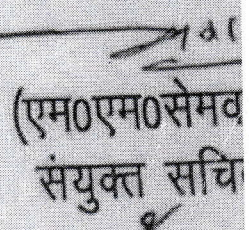 (एम0एम0सेमव
संयुक्त सचि